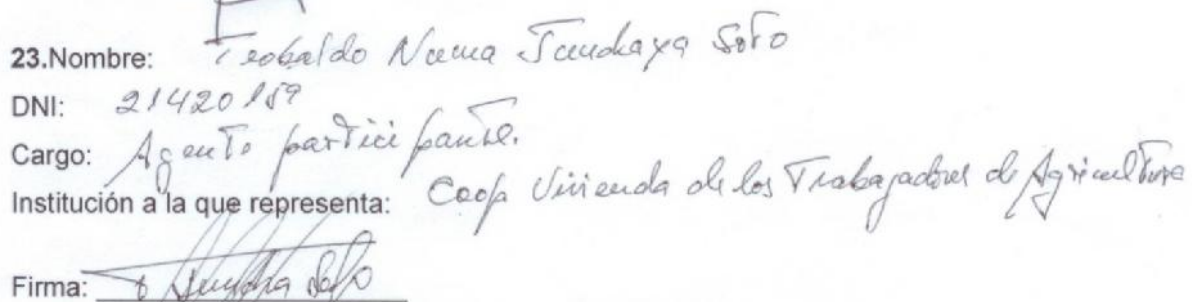 23.Nombre: Teobaldo Numa Jundaya Soto
DNI: 21420159
Cargo: Agente participante.
Institución a la que representa: Coop Vivienda de los Trabajadores de Agricultura
Firma: